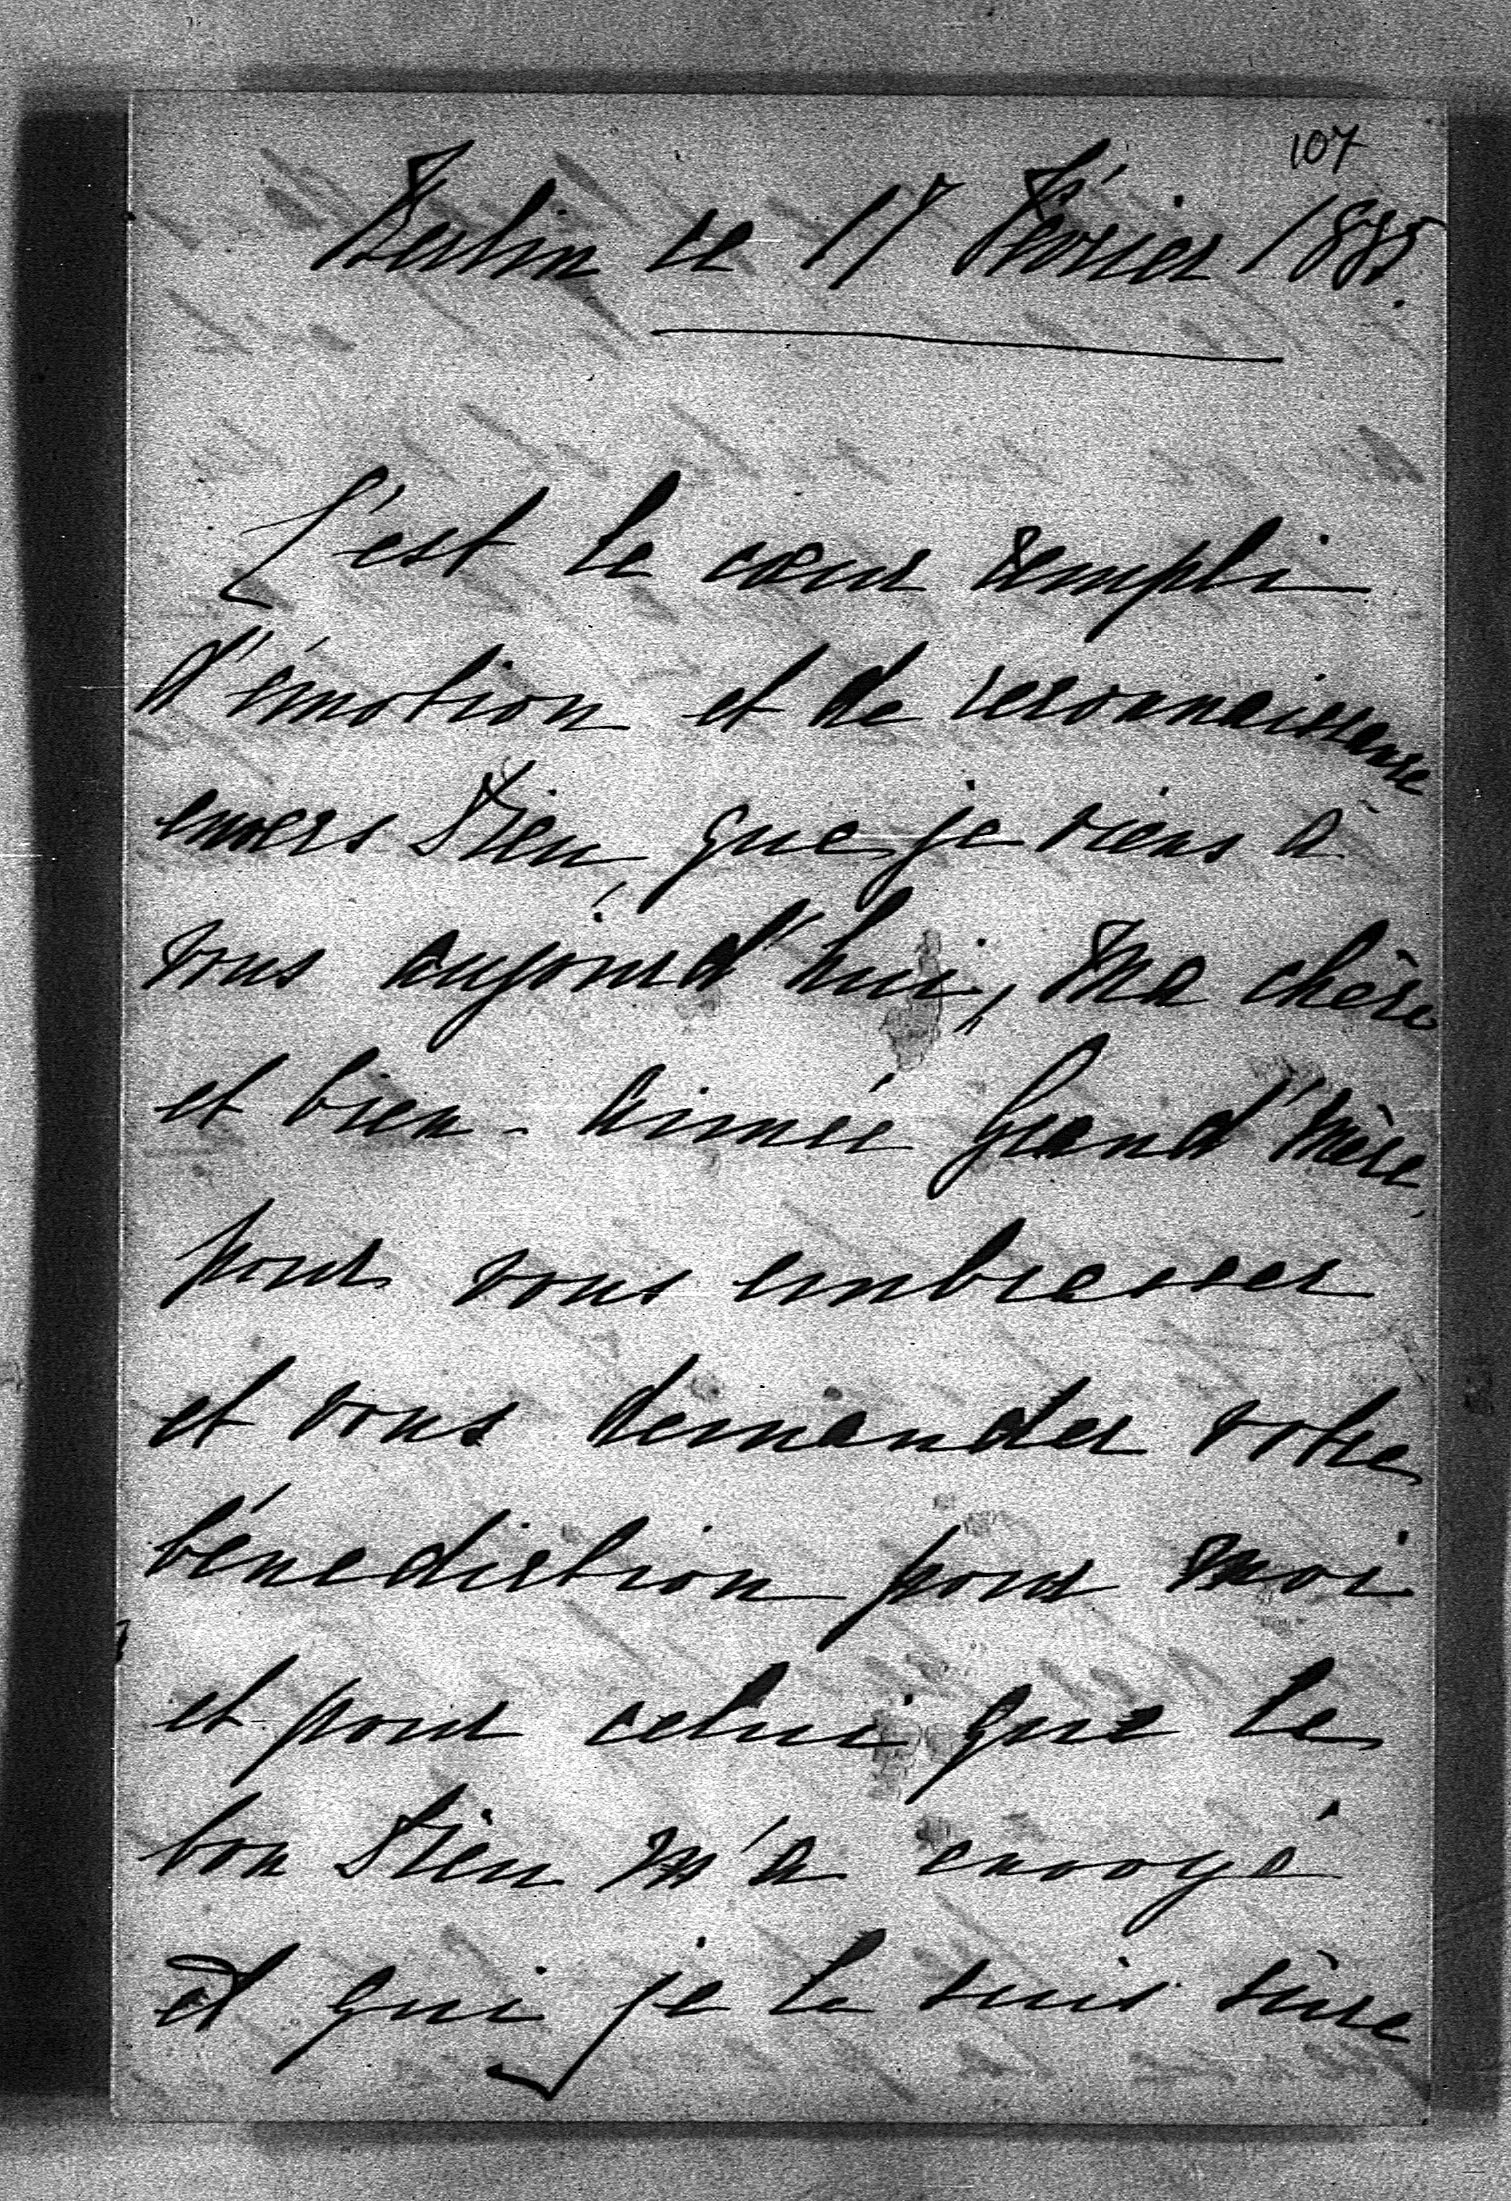 107
Berlin ce 17 Février 1885.
C'est le cœur rempli
d'émotion et de reconnaissance
envers Dieu, que je viens à
vous aujourd'hui, ma chère
et bien-aimée Grand'mère,
pour vous embrasser
et vous demander votre
bénédiction pour moi
et pour celui que le
bon Dieu m'a envoyé
et qui je le suis sûre